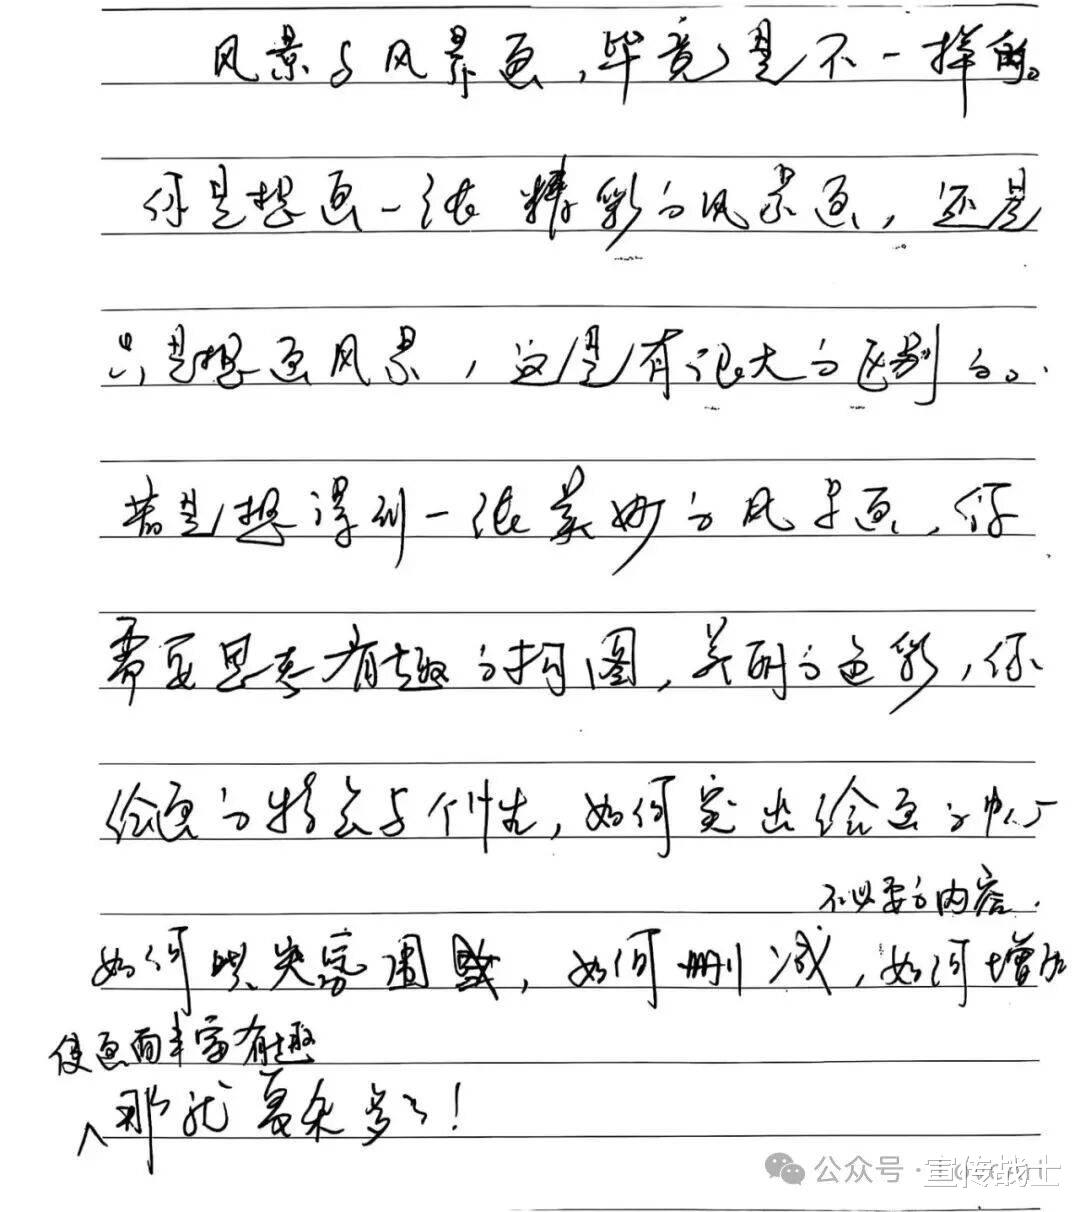 风景与风景画，毕竟是不一样的。
你是想画一张精彩的风景画，还是
只是想画风景，这是有很大的区别的。
若是想得到一张美妙的风景画，你
需要思考有趣的构图，美丽的色彩，你
绘画的特点与个性，如何突出绘画的中心
不必要的内容.
如何烘突氛围，如何删减，如何增加
使画面丰富有趣
那就复杂多了！
公众号·宣传战士